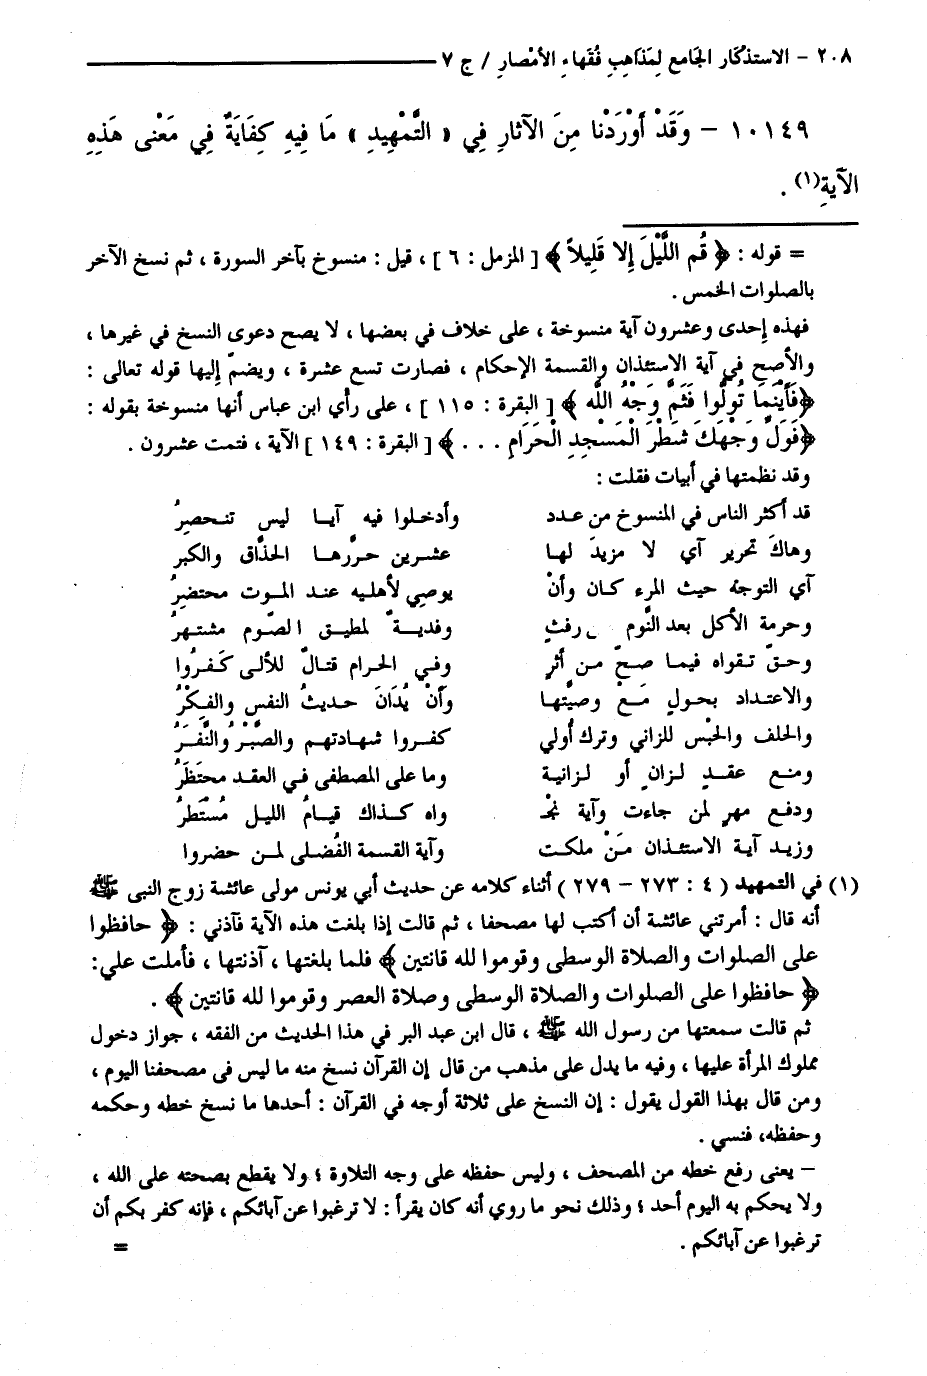 ٢٠٨ - الاستذكار الجامع لِمَذاهِبِ فُقَهاءِ الأمْصارِ / ج ٧
١٠١٤٩ - وَقَدْ أوْرَدْنا مِنَ الآثارِ فِي « التَّمْهِيدِ » مَا فِيهِ كِفَايَةٌ فِي مَعْنى هَذِهِ
الآيَةِ(١) .
= قوله : ﴿ قُم اللَّيْلَ إِلا قَلِيلاً ﴾ [ المزمل : ٦ ] ، قيل : منسوخ بآخر السورة ، ثم نسخ الآخر
بالصلوات الخمس .
فهذه إحدى وعشرون آية منسوخة ، على خلاف في بعضها ، لا يصح دعوى النسخ في غيرها ،
والأصح في آية الاستئذان والقسمة الإحكام ، فصارت تسع عشرة ، ويضمّ إليها قوله تعالى :
﴿فَأَيْنَمَا تُوَلُّوا فَثَمَّ وَجْهُ اللَّه ﴾ [ البقرة : ١١٥ ] ، على رأي ابن عباس أنها منسوخة بقوله :
﴿فَوَلِّ وَجْهَكَ شَطْرَ الْمَسْجِدِ الْحَرَامِ . . . ﴾ [ البقرة : ١٤٩ ] الآية ، فتمت عشرون .
وقد نظمتها في أبيات فقلت :
قد أكثر الناس في المنسوخ من عدد وأدخلوا فيه آيـا ليس تنـحصرُ
وهاكَ تحرير آي لا مزيدَ لهـا عشـرين حرَّرهـا الحذَّاق والكبر
آي التوجهُ حيث المرء كـان وأنْ يوصي لأهليه عند المـوت محتضِرُ
وحرمة الأكل بعد النَّوم رفثٍ وفديـةٌ لمطيق الصّوم مشتـهرُ
وحقّ تـقواه فيمـا صحّ مـن أثرٍ وفي الحرام قتالٌ للألى كَفـرُوا
والاعتـداد بحـولٍ مَـعْ وصيّتهـا وَأنْ يُدَانَ حديثُ النفس والفِكْرُ
والحلف والحبْس للزاني وترك أُولي كفـروا شهادتهم والصَّبْرُ والنَّفَرُ
ومنـع عقـدٍ لـزانٍ أو لـزانية وما على المصطفى في العقد محتَظَرُ
ودفع مهرٍ لمن جاءت وآية نجْـ ـواه كـذاك قيامُ الليل مُسْتَطَرُ
وزيد آية الاستئذان مَنْ ملكت وآية القسمة الفُضلى لمن حضروا
(١) في التمهيد ( ٤ : ٢٧٣ - ٢٧٩ ) أثناء كلامه عن حديث أبي يونس مولى عائشة زوج النبى ﷺ
أنه قال : أمرتني عائشة أن أكتب لها مصحفا ، ثم قالت إذا بلغت هذه الآية فآذني : ﴿ حافظوا
على الصلوات والصلاة الوسطى وقوموا لله قانتين ﴾ فلما بلغتها ، آذنتها ، فأملت علي :
﴿ حافظوا على الصلوات والصلاة الوسطى وصلاة العصر وقوموا لله قانتين ﴾ .
ثم قالت سمعتها من رسول الله ﷺ ، قال ابن عبد البر في هذا الحديث من الفقه ، جواز دخول
مملوك المرأة عليها ، وفيه ما يدل على مذهب من قال إن القرآن نسخ منه ما ليس فى مصحفنا اليوم ،
ومن قال بهذا القول يقول : إن النسخ على ثلاثة أوجه في القرآن : أحدها ما نسخ خطه وحكمه
وحفظه، فنسي .
- يعنى رفع خطه من المصحف ، وليس حفظه على وجه التلاوة ؛ ولا يقطع بصحته على الله ،
ولا يحكم به اليوم أحد ؛ وذلك نحو ما روي أنه كان يقرأ : لا ترغبوا عن آبائكم ، فإنه كفر بكم أن
ترغبوا عن آبائكم .
=